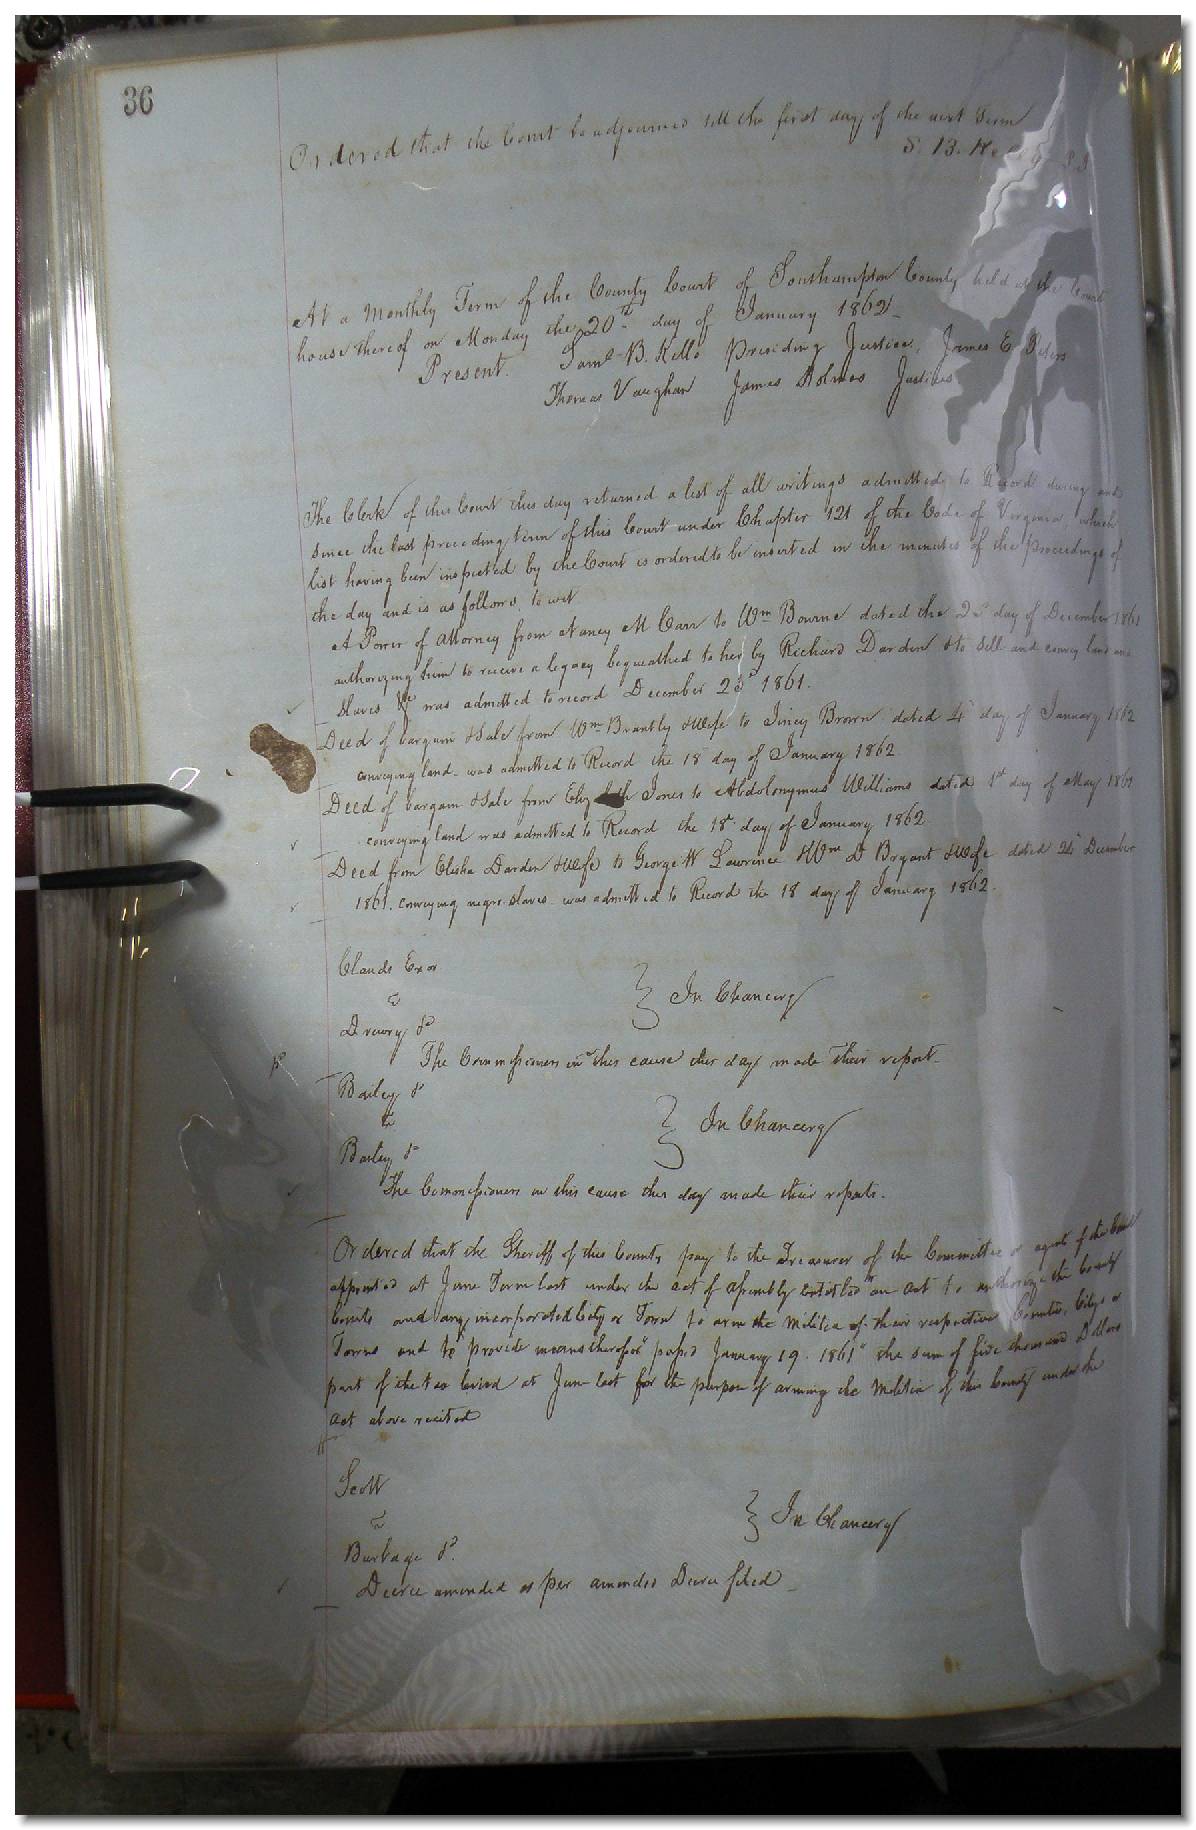 36
Ordered that the Court be adjourned till the first day of the next Term
S. B.
At a Monthly Term of the County Court of Southampton County held at the Court
house thereof on Monday the 20th day of January 1862
Present. Saml B. Kello Presiding Justice, James E Peters
Thomas Vaughan James Holmes Justices
The Clerk of this Court this day returned a list of all writings admitted to Record during and
since the last preceding term of this Court under Chapter 121 of the Code of Virginia which
list having been inspected by the Court is ordered to be inserted in the minutes of the proceedings of
the day and is as follows, to wit
A Power of Attorney from Nancy M Carr to Wm Bourne dated the day of December 1861
authorizing him to receive a legacy bequeathed to her by Richard Darden & to sell and convey land and
slaves &c was admitted to record December 23d 1861.
Deed of bargain & Sale from Wm Brantly & Wife to Jincy Brown dated 4 day of January 1862
conveying land was admitted to Record the 18 day of January 1862
Deed of bargain & Sale from Jones to Abdolonymus Williams dated 1st day of May 1861
conveying land was admitted to Record the 18 day of January 1862
Deed from Elisha Darden & Wife to George W Lawrence & Wm D Bryant & Wife dated 24 December
1861. conveying negro slaves was admitted to Record the 18 day of January 1862.
Clauds Exor
vs
Drewry &c
} In Chancery
The Commissioners in this cause this day made their report.
Bailey &c
vs
Bailey &c
} In Chancery
The Commissioners in this cause this day made their report.
Ordered that the Sheriff of this County pay to the Treasurer of the Committee or agents of the Court
appointed at June Term last under the act of Assembly entitled "an act to authorize the County
Courts and any incorporated City or Town to arm the Militia of their respective Counties, Citys or
Towns and to provide means therefor" passed January 19. 1861" the sum of five thousand Dollars
part of the levied at June last for the purpose of arming the Militia of this County under the
act above recited
Scott
vs
Burbage &c.
} In Chancery
Decree amended as per amended Decree filed